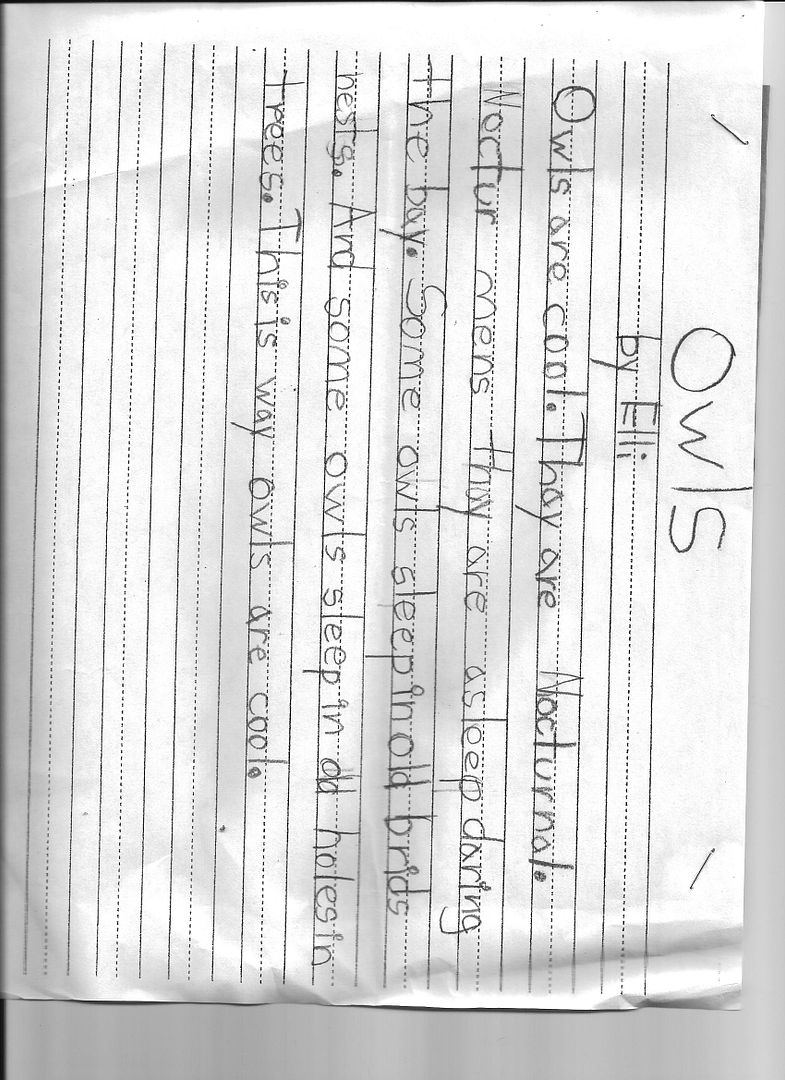 Owls
by Elli
Owls are cool. Thay are Nocturnal.
Noctur mens thay are asleep daring
the bay. Some owls sleep in old brids
nests. And some owls sleep in old holes in
trees. This is way owls are cool.